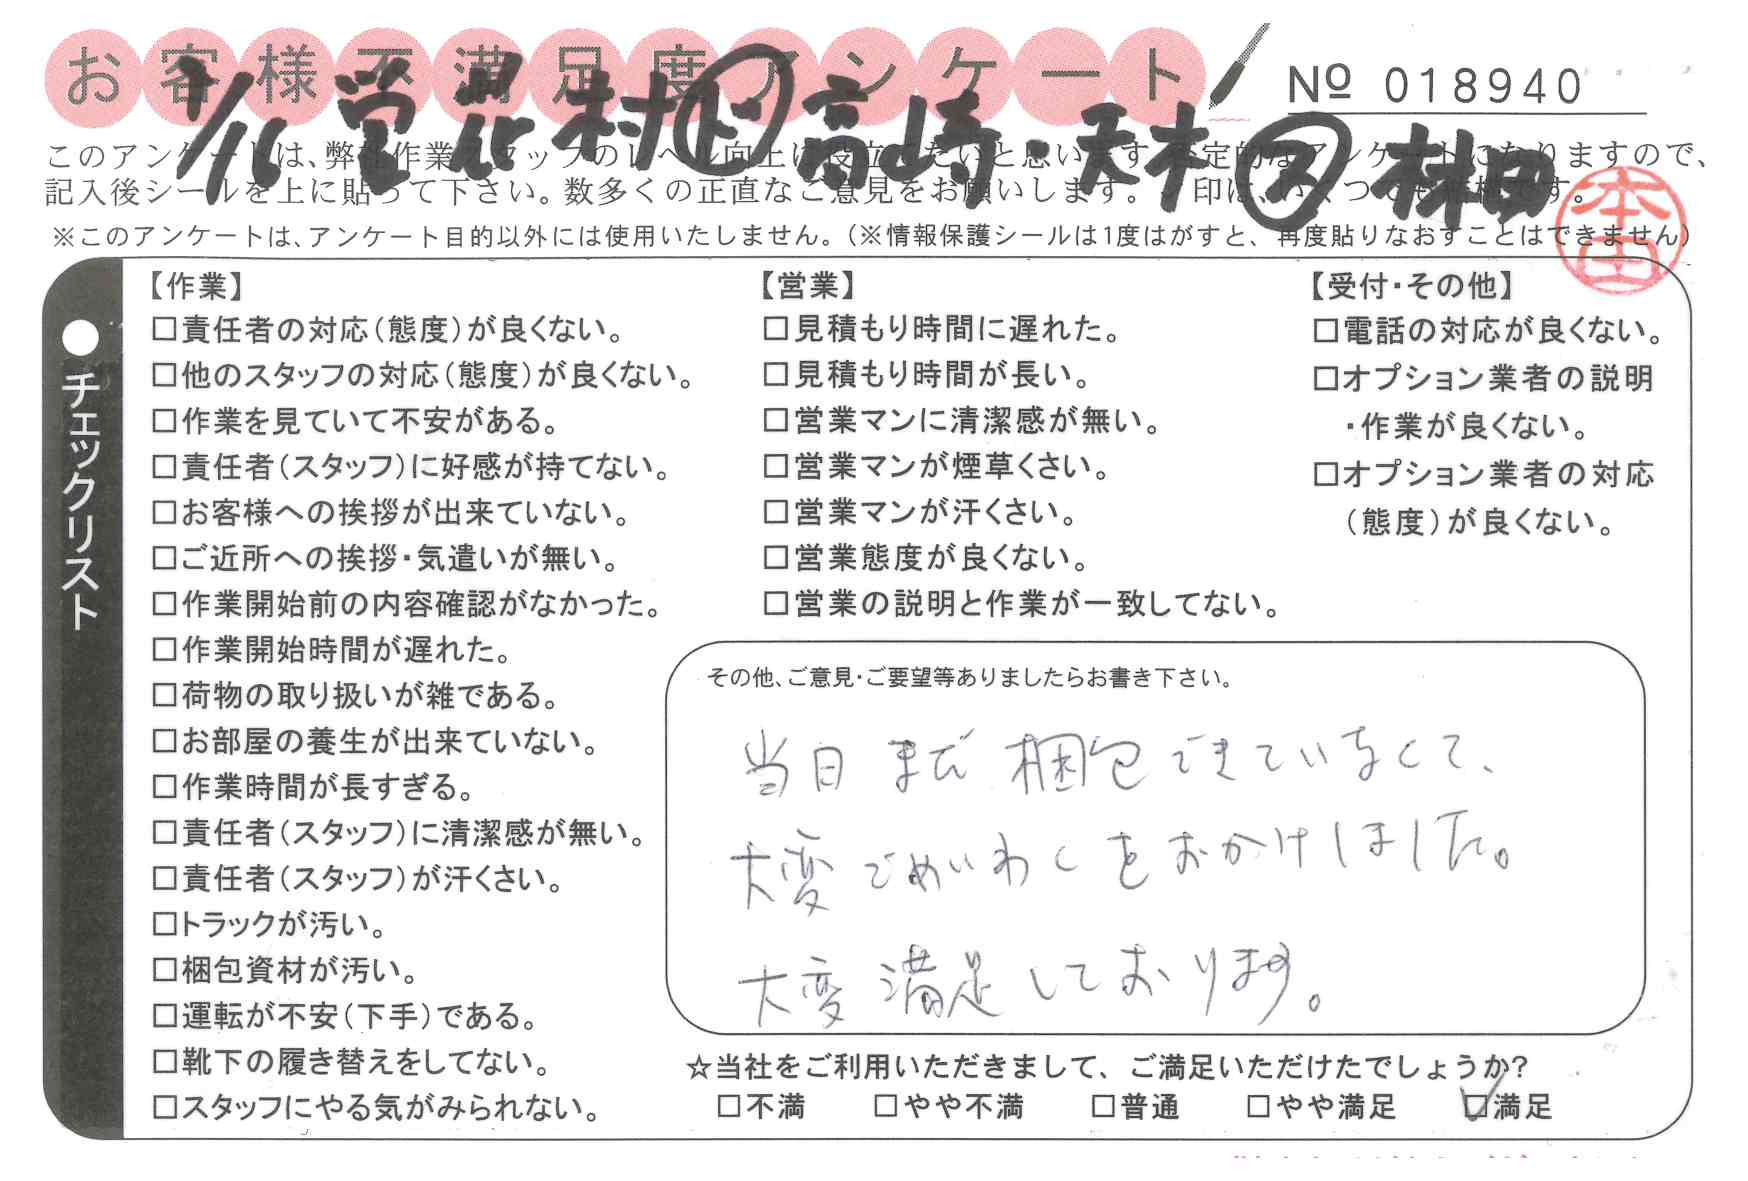 お客様不満足度アンケート
№ 018940
このアンケートは、弊社作業スタッフのレベル向上に役立てたいと思います。否定的なアンケートになりますので、
記入後シールを上に貼って下さい。数多くの正直なご意見をお願いします。レ印は、いくつでも結構です。
※このアンケートは、アンケート目的以外には使用いたしません。(※情報保護シールは1度はがすと、再度貼りなおすことはできません)
本田
●チェックリスト
【作業】
□責任者の対応(態度)が良くない。
□他のスタッフの対応(態度)が良くない。
□作業を見ていて不安がある。
□責任者(スタッフ)に好感が持てない。
□お客様への挨拶が出来ていない。
□ご近所への挨拶・気遣いが無い。
□作業開始前の内容確認がなかった。
□作業開始時間が遅れた。
□荷物の取り扱いが雑である。
□お部屋の養生が出来ていない。
□作業時間が長すぎる。
□責任者(スタッフ)に清潔感が無い。
□責任者(スタッフ)が汗くさい。
□トラックが汚い。
□梱包資材が汚い。
□運転が不安(下手)である。
□靴下の履き替えをしてない。
□スタッフにやる気がみられない。
【営業】
□見積もり時間に遅れた。
□見積もり時間が長い。
□営業マンに清潔感が無い。
□営業マンが煙草くさい。
□営業マンが汗くさい。
□営業態度が良くない。
□営業の説明と作業が一致してない。
【受付・その他】
□電話の対応が良くない。
□オプション業者の説明
・作業が良くない。
□オプション業者の対応
(態度)が良くない。
その他、ご意見・ご要望等ありましたらお書き下さい。
当日まで梱包できていなくて、
大変ごめいわくをおかけしました。
大変満足しております。
☆当社をご利用いただきまして、ご満足いただけたでしょうか?
□不満 □やや不満 □普通 □やや満足 ☑満足